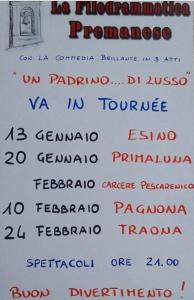 La Filodrammatica
Premanese
CON LA COMMEDIA BRILLANTE IN 3 ATTI
"UN PADRINO....DI LUSSO"
VA IN TOURNÉE
13 GENNAIO ESINO
20 GENNAIO PRIMALUNA
FEBBRAIO CARCERE PESCARENICO
10 FEBBRAIO PAGNONA
24 FEBBRAIO TRAONA
SPETTACOLI ORE 21.00
BUON DIVERTIMENTO!